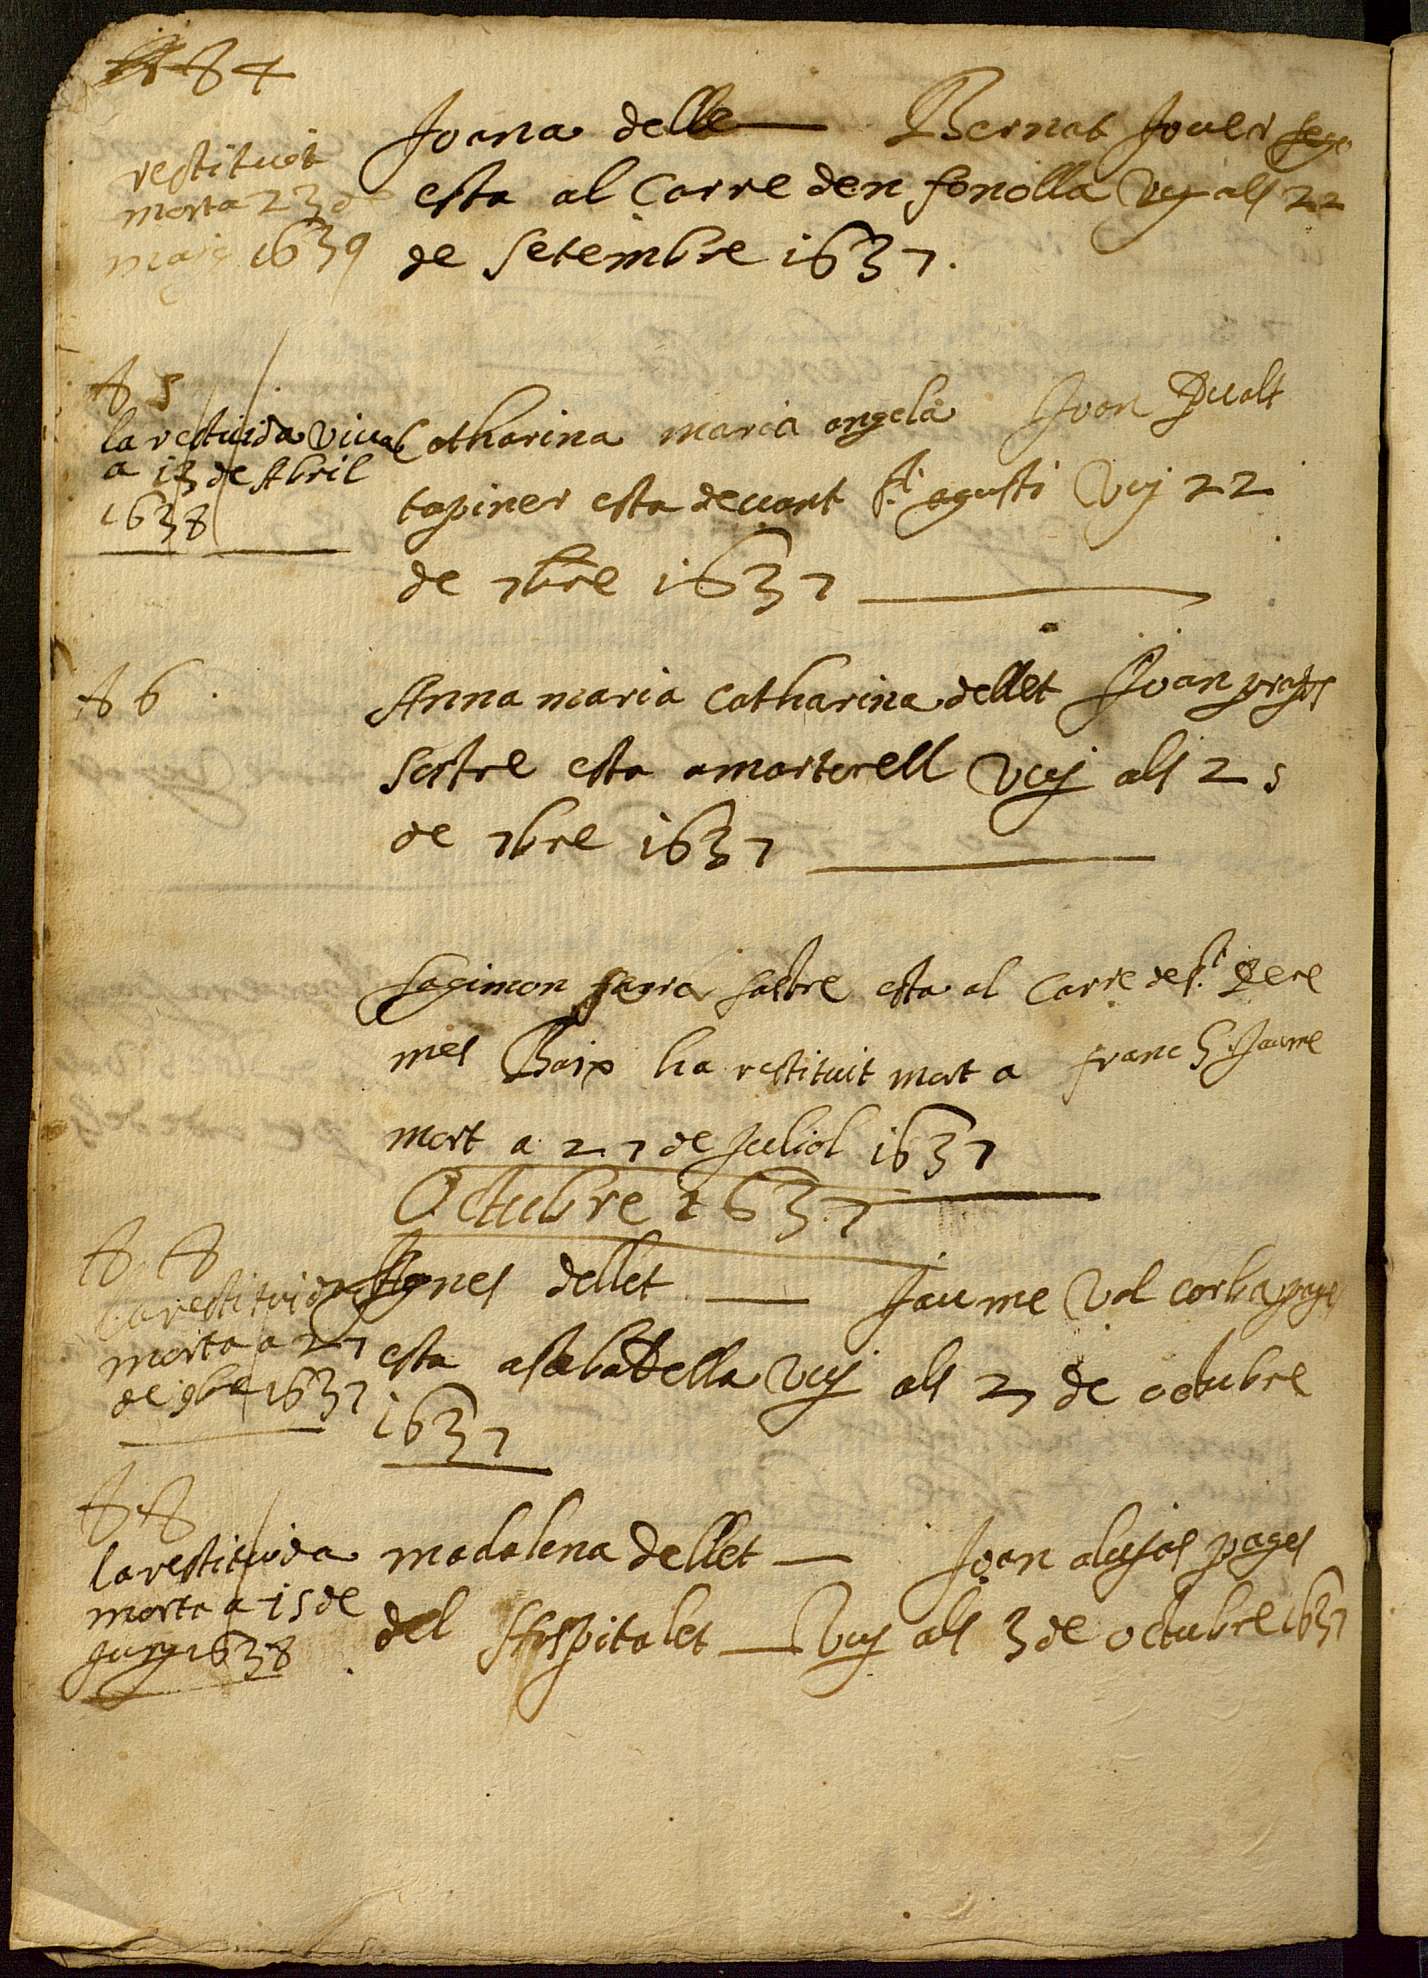 84
restituit
morta 23 de
maig 1639
Joana delle — Bernat Jover
esta al Carre den fonolla Vuy als 22
de Setembre 1637.
85
la restituida viva
a 13 de Abril
1638
Catharina maria angela Joan
tapiner esta devant St. agusti Vuy 22
de 7bre 1637
86
Anna maria Catharina dellet Joan
Sastre esta amartorell Vuy als 25
de 7bre 1637
Sagimon sastre esta al Carre de St. Pere
mes Baix ha restituit mort a franc S. Jaume
mort a 27 de Juliol 1637
Octubre 1637
88
la restituida
morta a 27
de 9bre 1637
Agnes dellet — Jaume Vol corba pages
esta asabadella Vuy als 2 de octubre
1637
88
la restituida
morta a 15 de
juny 1638
madalena dellet — Joan alujas pages
del Hospitalet — Vuy als 3 de octubre 1637